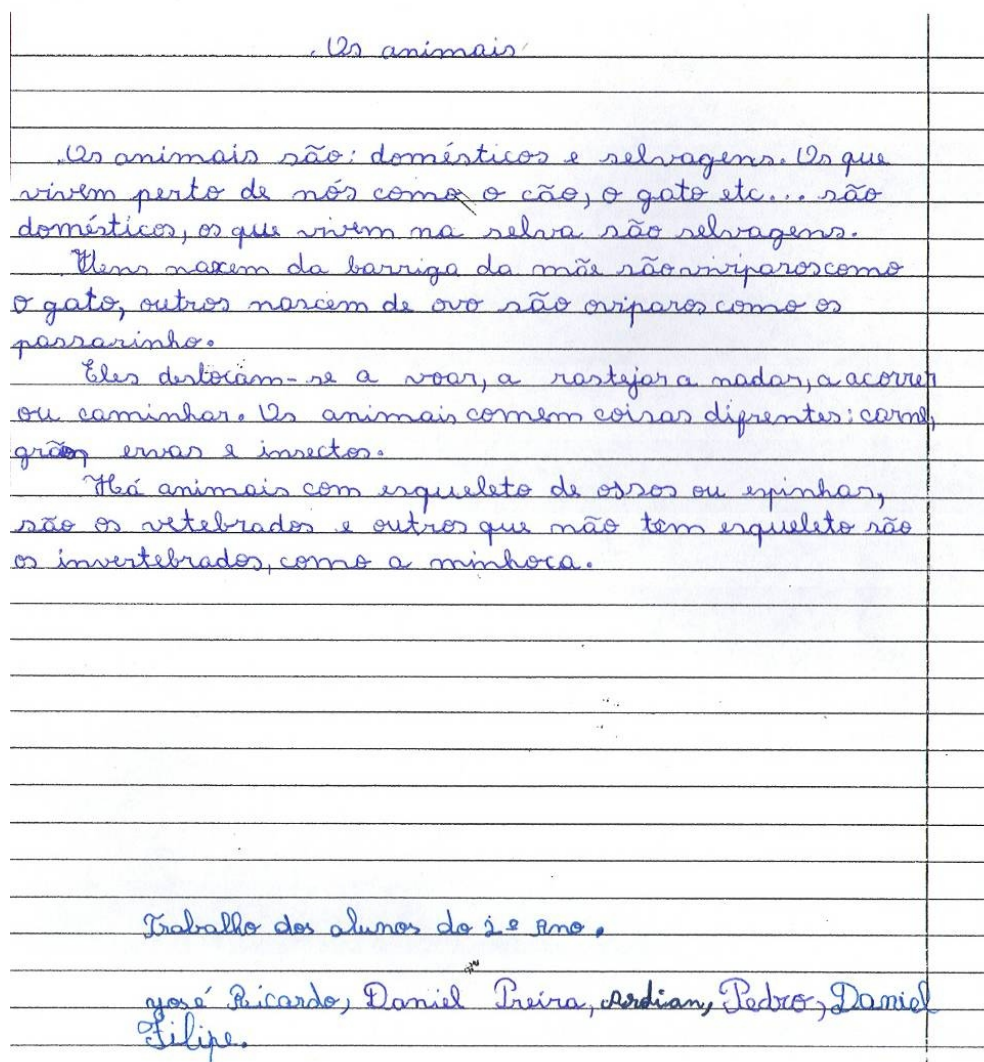 Os animais
Os animais são: domésticos e selvagens. Os que
vivem perto de nós como o cão, o gato etc... são
domésticos, os que vivem na selva são selvagens.
Uens naxem da barriga da mãe são viviparos como
o gato, outros nascem de ovo são oviparos como os
passarinho.
Eles deslocam-se a voar, a rastejar a nadar, a acorrer
ou caminhar. Os animais comem coisas difrentes: carne,
grãos, ervas e insectos.
Há animais com esqueleto de ossos ou espinhas,
são os vetebrados e outros que não têm esqueleto são
os invertebrados, como a minhoca.
Trabalho dos alunos do 2º Ano.
José Ricardo, Daniel Preira, Ardian, Pedro, Daniel
Filipe.